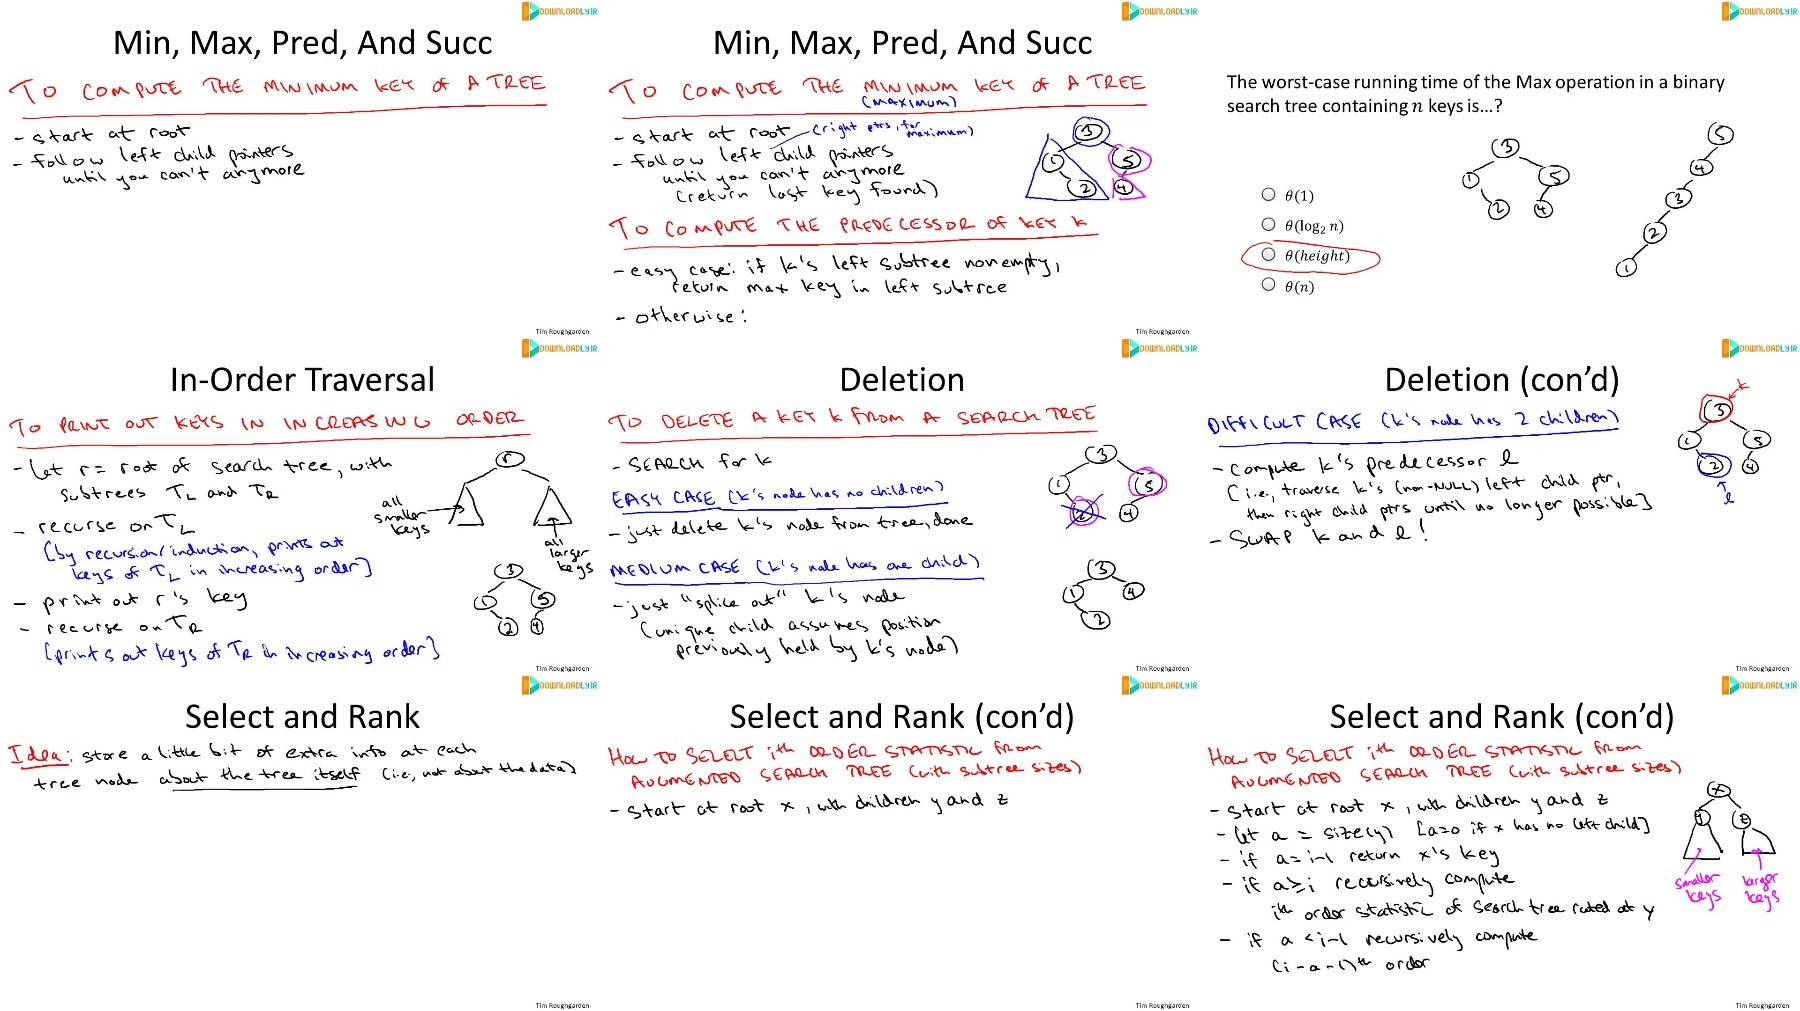 DOWNLOADLY.IR
Min, Max, Pred, And Succ
TO COMPUTE THE MINIMUM KEY OF A TREE
- start at root
- follow left child pointers
until you can't anymore
Tim Roughgarden
DOWNLOADLY.IR
Min, Max, Pred, And Succ
TO COMPUTE THE MINIMUM KEY OF A TREE
(MAXIMUM)
- start at root
(right ptrs, for
maximum)
- follow left child pointers
until you can't anymore
(return last key found)
3
1
5
2
4
TO COMPUTE THE PREDECESSOR OF KEY K
- easy case: if k's left subtree nonempty,
return max key in left subtree
- otherwise:
Tim Roughgarden
DOWNLOADLY.IR
The worst-case running time of the Max operation in a binary
search tree containing n keys is...?
θ(1)
θ(log₂ n)
θ(height)
θ(n)
3
1
5
2
4
5
4
3
2
1
DOWNLOADLY.IR
In-Order Traversal
TO PRINT OUT KEYS IN INCREASING ORDER
- Let r = root of search tree, with
subtrees TL and TR
- recurse on TL
[by recursion/induction, prints out
keys of TL in increasing order]
- print out r's key
- recurse on TR
[prints out keys of TR in increasing order]
r
all
smaller
keys
all
larger
keys
3
1
5
2
4
Tim Roughgarden
DOWNLOADLY.IR
Deletion
TO DELETE A KEY K FROM A SEARCH TREE
- SEARCH for k
EASY CASE (k's node has no children)
- just delete k's node from tree, done
MEDIUM CASE (k's node has one child)
- just "splice out" k's node
(unique child assumes position
previously held by k's node)
3
1
5
2
4
3
1
4
2
Tim Roughgarden
DOWNLOADLY.IR
Deletion (con'd)
DIFFICULT CASE (k's node has 2 children)
- compute k's predecessor l
[i.e., traverse k's (non-NULL) left child ptr,
then right child ptrs until no longer possible]
- SWAP k and l !
k
3
1
5
2
4
l
Tim Roughgarden
DOWNLOADLY.IR
Select and Rank
Idea: store a little bit of extra info at each
tree node about the tree itself (i.e., not about the data)
Tim Roughgarden
DOWNLOADLY.IR
Select and Rank (con'd)
HOW TO SELECT ith ORDER STATISTIC FROM
AUGMENTED SEARCH TREE (with subtree sizes)
- start at root x, with children y and z
Tim Roughgarden
DOWNLOADLY.IR
Select and Rank (con'd)
HOW TO SELECT ith ORDER STATISTIC FROM
AUGMENTED SEARCH TREE (with subtree sizes)
- start at root x, with children y and z
- let a = size(y) [a=0 if x has no left child]
- if a = i-1 return x's key
- if a ≥ i recursively compute
ith order statistic of search tree rooted at y
- if a < i-1 recursively compute
(i-a-1)th order
x
y
z
smaller
keys
larger
keys
Tim Roughgarden